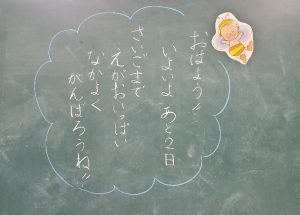 おはよう!!
いよいよ あと2日
さいごまで
えがおいっぱい
なかよく
がんばろうね!!